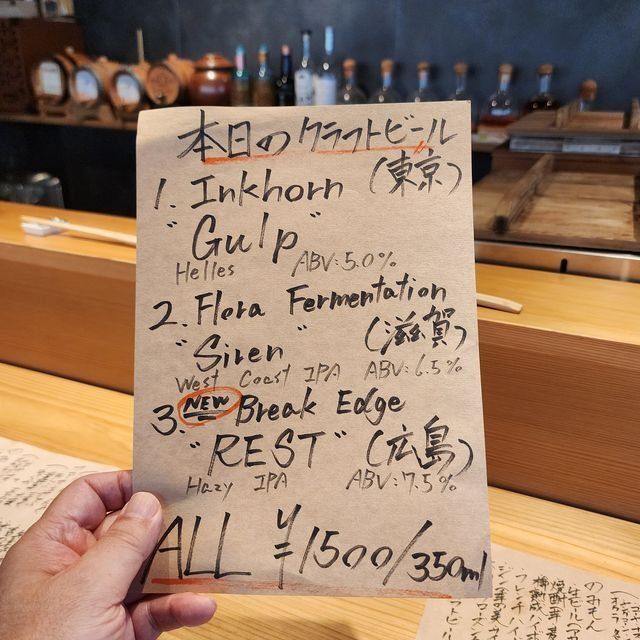 本日のクラフトビール
1. Inkhorn (東京)
"Gulp"
Helles ABV:5.0%
2. Flora Fermentation
"Siren" (滋賀)
West Coast IPA ABV:6.5%
3. NEW Break Edge
"REST" (広島)
Hazy IPA ABV:7.5%
ALL ¥1500/350ml